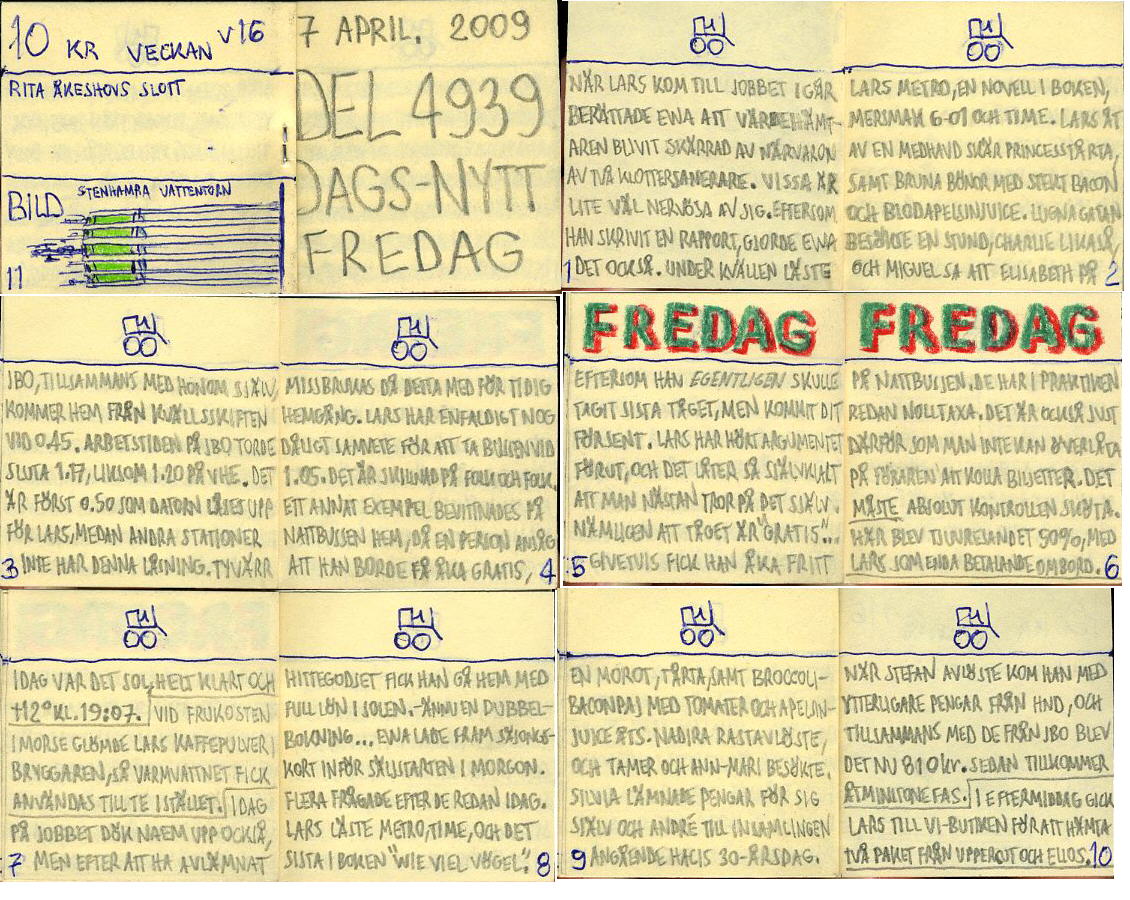 10 KR VECKAN V16
RITA ÅKESHOVS SLOTT
BILD STENHAMRA VATTENTORN
11
7 APRIL. 2009
DEL 4939
DAGS-NYTT
FREDAG
NÄR LARS KOM TILL JOBBET IGÅR
BERÄTTADE EWA ATT VÄRDEHÄMT-
AREN BLIVIT SKÄRRAD AV NÄRVARON
AV TVÅ KLOTTERSANERARE. VISSA ÄR
LITE VÄL NERVÖSA AV SIG. EFTERSOM
HAN SKRIVIT EN RAPPORT, GJORDE EWA
1 DET OCKSÅ. UNDER KVÄLLEN LÄSTE
LARS METRO, EN NOVELL I BOKEN,
MERSMAK 6-01 OCH TIME. LARS ÅT
AV EN MEDHAVD SKÄR PRINCESSTÅRTA,
SAMT BRUNA BÖNOR MED STEKT BACON
OCH BLODAPELSINJUICE. LUGNA GATAN
BESÖKTE EN STUND, CHARLIE LIKASÅ,
OCH MIGUEL SA ATT ELISABETH PÅ 2
JBO, TILLSAMMANS MED HONOM SJÄLV,
KOMMER HEM FRÅN KVÄLLSSKIFTEN
VID 0.45. ARBETSTIDEN PÅ JBO TORDE
SLUTA 1.17, LIKSOM 1.20 PÅ VHE. DET
ÄR FÖRST 0.50 SOM DATORN LÅSES UPP
FÖR LARS, MEDAN ANDRA STATIONER
3 INTE HAR DENNA LÅSNING. TYVÄRR
MISSBRUKAS DÅ DETTA MED FÖR TIDIG
HEMGÅNG. LARS HAR ENFALDIGT NOG
DÅLIGT SAMVETE FÖR ATT TA BUSSEN VID
1.05. DET ÄR SKILLNAD PÅ FOLK OCH FOLK.
ETT ANNAT EXEMPEL BEVITTNADES PÅ
NATTBUSSEN HEM, DÅ EN PERSON ANSÅG
ATT HAN BORDE FÅ ÅKA GRATIS, 4
FREDAG
EFTERSOM HAN EGENTLIGEN SKULLE
TAGIT SISTA TÅGET, MEN KOMMIT DIT
FÖR SENT. LARS HAR HÖRT ARGUMENTET
FÖRUT, OCH DET LÅTER SÅ SJÄLVKLART
ATT MAN NÄSTAN TROR PÅ DET SJÄLV.
NÄMLIGEN ATT TÅGET ÄR "GRATIS"...
5 GIVETVIS FICK HAN ÅKA FRITT
FREDAG
PÅ NATTBUSSEN. DE HAR I PRAKTIKEN
REDAN NOLLTAXA. DET ÄR OCKSÅ JUST
DÄRFÖR SOM MAN INTE KAN ÖVERLÅTA
PÅ FÖRAREN ATT KOLLA BILJETTER. DET
MÅSTE ABSOLUT KONTROLLEN SKÖTA.
HÄR BLEV TJUVÅKANDET 50%, MED
LARS SOM ENDA BETALANDE OMBORD. 6
IDAG VAR DET SOL, HELT KLART OCH
+12° KL. 19:07. VID FRUKOSTEN
I MORSE GLÖMDE LARS KAFFEPULVER I
BRYGGAREN, SÅ VARMVATTNET FICK
ANVÄNDAS TILL TE I STÄLLET. IDAG
PÅ JOBBET DÖK NAEM UPP OCKSÅ,
7 MEN EFTER ATT HA AVLÄMNAT
HITTEGODSET FICK HAN GÅ HEM MED
FULL LÖN I SOLEN. -ÄNNU EN DUBBEL-
BOKNING... EWA LADE FRAM SÄSONGS-
KORT INFÖR SÄLJSTARTEN I MORGON.
FLERA FRÅGADE EFTER DE REDAN IDAG.
LARS LÄSTE METRO, TIME, OCH DET
SISTA I BOKEN "WIE VIEL VÖGEL". 8
EN MOROT, TÅRTA, SAMT BROCCOLI-
BACONPAJ MED TOMATER OCH APELSIN-
JUICE ÄTS. NADIRA RASTAVLÖSTE,
OCH TAMER OCH ANN-MARI BESÖKTE.
SILVIA LÄMNADE PENGAR FÖR SIG
SJÄLV OCH ANDRÉ TILL INSAMLINGEN
9 ANGÅENDE HACIS 30-ÅRSDAG.
NÄR STEFAN AVLÖSTE KOM HAN MED
YTTERLIGARE PENGAR FRÅN HND, OCH
TILLSAMMANS MED DE FRÅN JBO BLEV
DET NU 810 kr. SEDAN TILLKOMMER
ÅTMINSTONE FAS. I EFTERMIDDAG GICK
LARS TILL VI-BUTIKEN FÖR ATT HÄMTA
TVÅ PAKET FRÅN UPPERCUT OCH ELLOS. 10